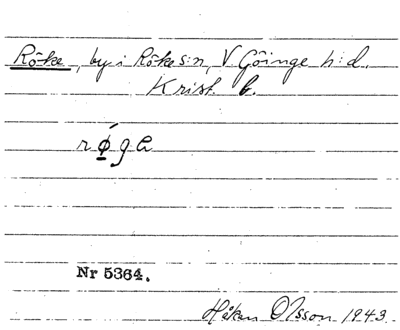 Röke, by i Röke s:n, V Göinge h:d.
Krist. b.
Nr 5364.
Håkan Olsson 1943